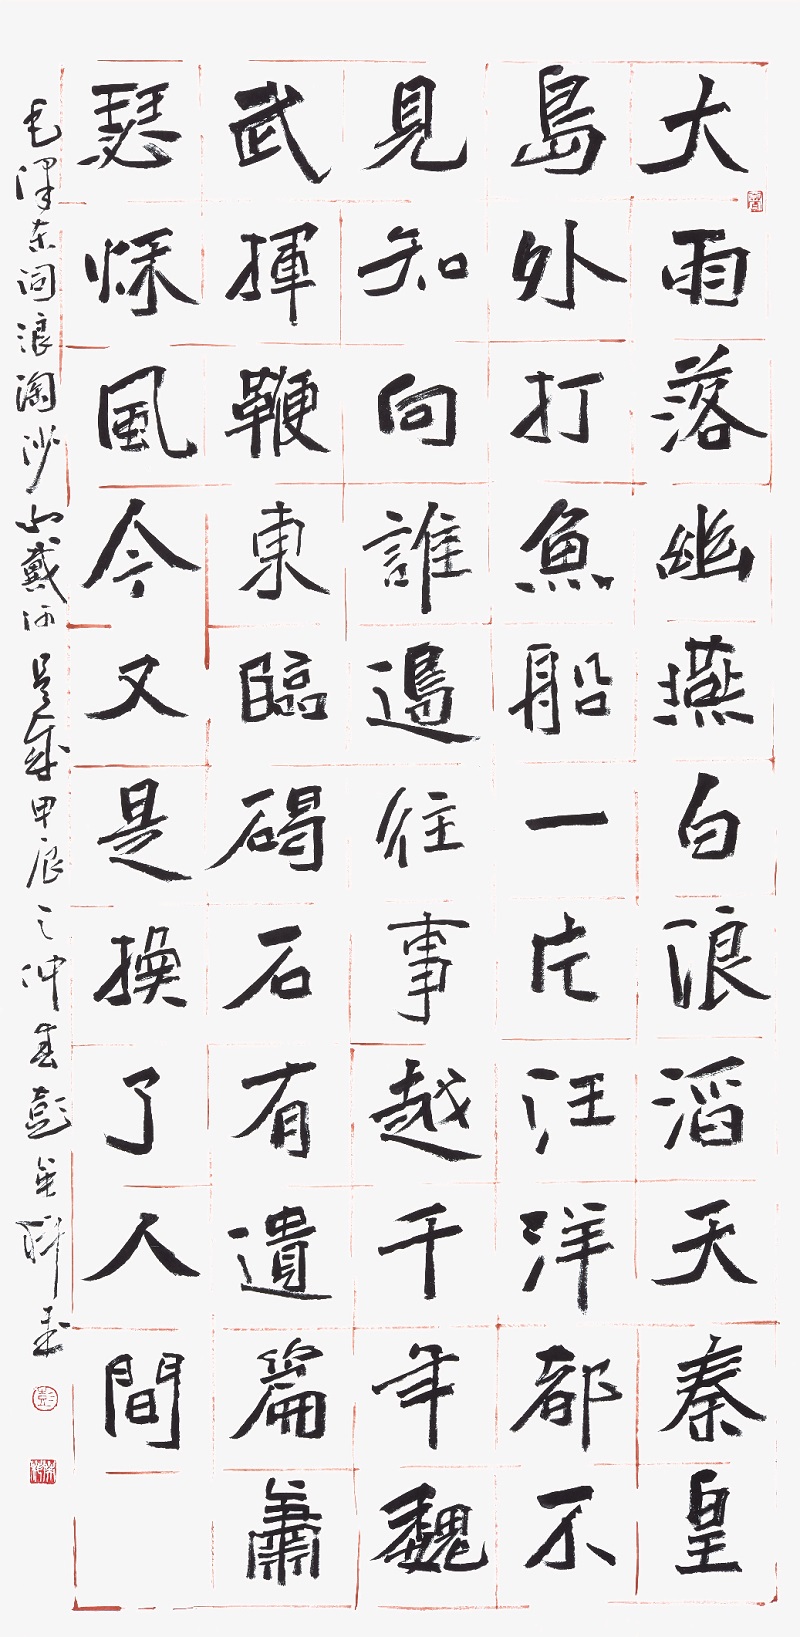 大雨落幽燕白浪滔天秦皇
島外打魚船一片汪洋都不
見知向誰邊往事越千年魏
武揮鞭東臨碣石有遺篇蕭
瑟秋風今又是換了人間
毛澤东词浪淘沙北戴河是歲甲辰之仲春彭